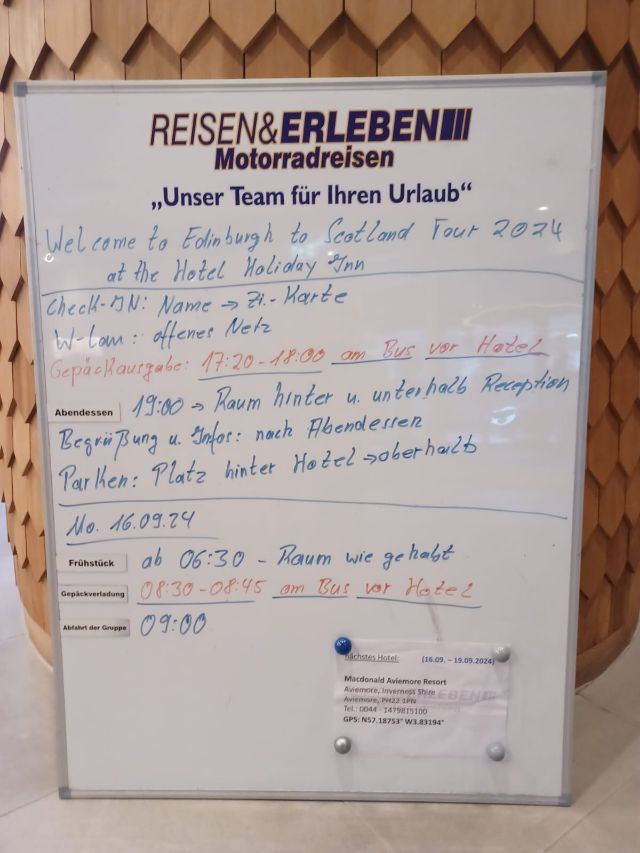 REISEN&ERLEBEN
Motorradreisen
„Unser Team für Ihren Urlaub“
Welcome to Edinburgh to Scotland Tour 2024
at the Hotel Holiday Inn
Check-IN: Name → Zi.-Karte
W-Lan: offenes Netz
Gepäckausgabe: 17:20-18:00 am Bus vor Hotel
Abendessen 19:00 → Raum hinter u. unterhalb Reception
Begrüßung u. Infos: nach Abendessen
Parken: Platz hinter Hotel → oberhalb
Mo. 16.09.24
Frühstück ab 06:30 - Raum wie gehabt
Gepäckverladung 08:30-08:45 am Bus vor Hotel
Abfahrt der Gruppe 09:00
nächstes Hotel: (16.09. – 19.09.2024)
Macdonald Aviemore Resort
Aviemore, Inverness Shire
Aviemore, PH22 1PN
Tel.: 0044 - 1479815100
GPS: N57.18753° W3.83194°